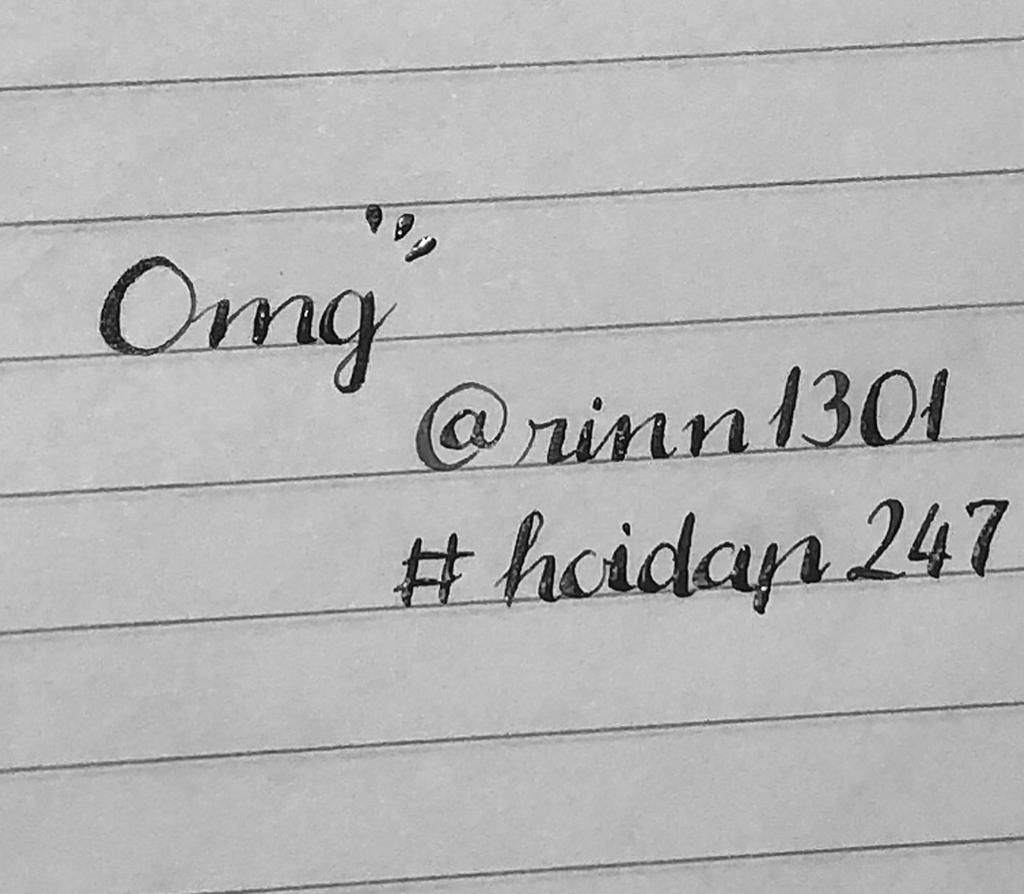 Omg
@rinn1301
#hoidap247